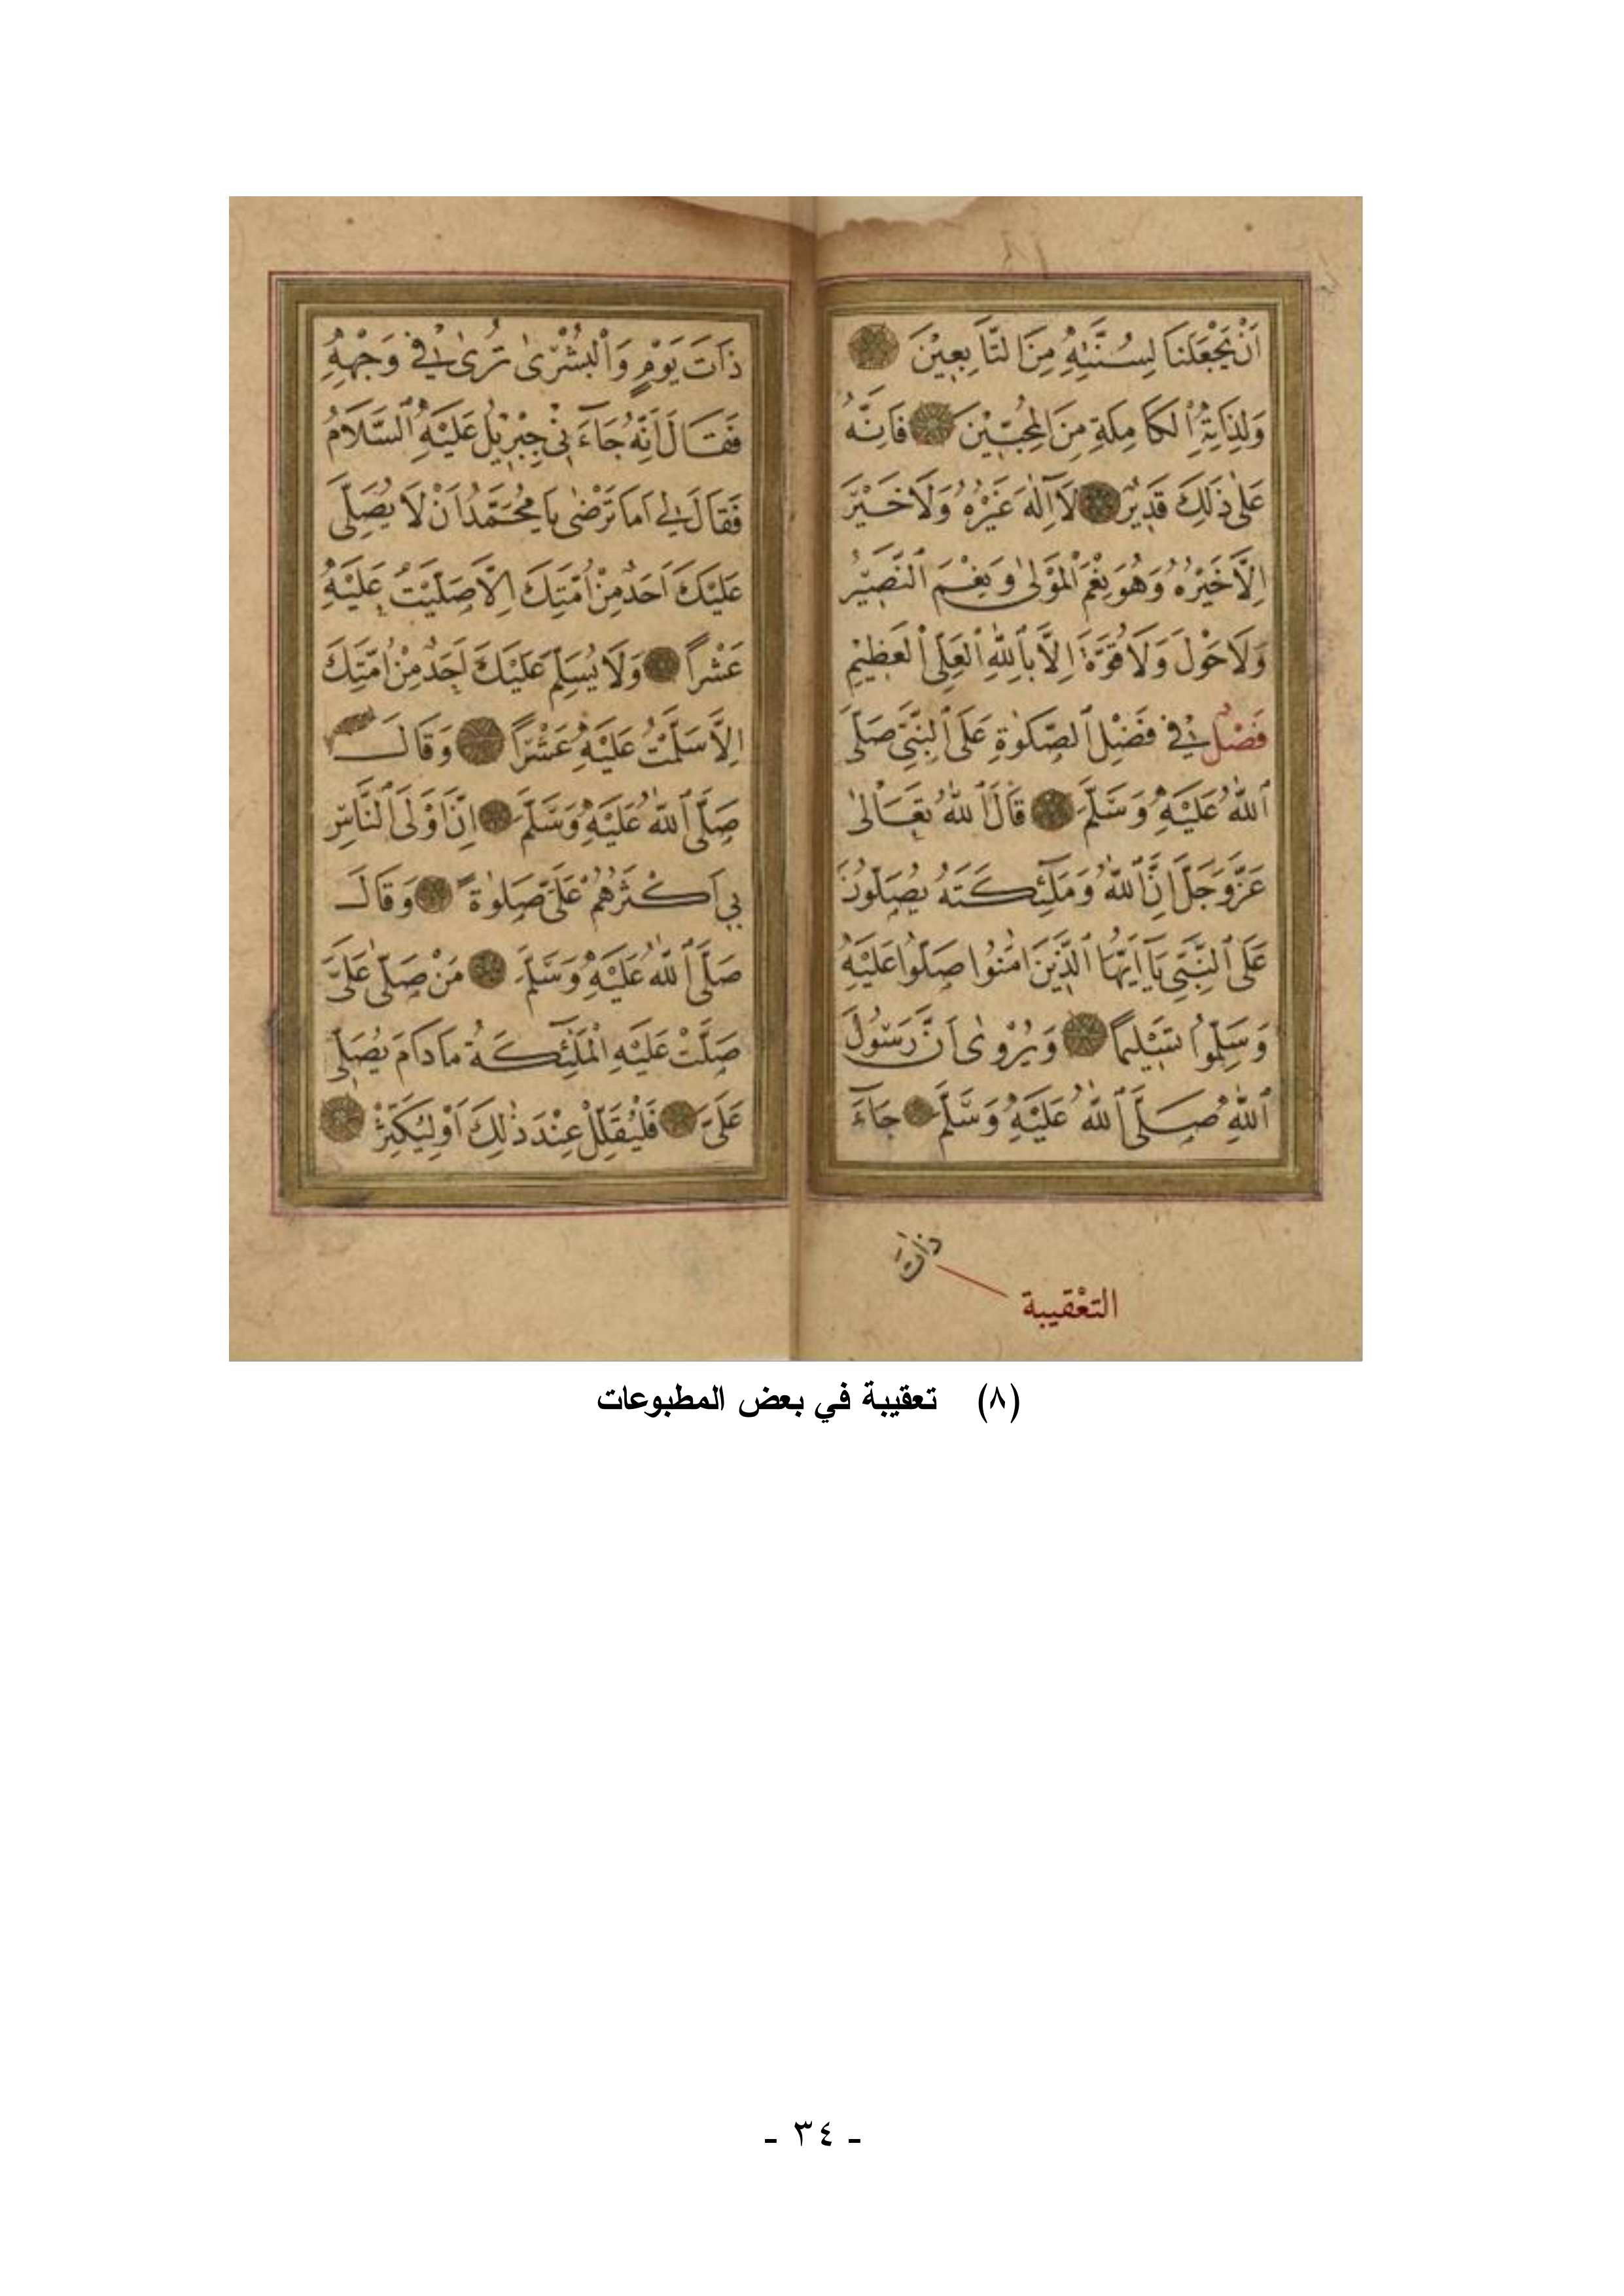 اَنْ يَجْعَلَنَا لِسُنَّتِهِ مِنَ التَّابِعِيْنَ
وَلِذَاتِهِ الْكَامِلَةِ مِنَ الْمُحِبِّيْنَ فَاِنَّهُ
عَلٰى ذٰلِكَ قَدِيْرٌ لَا اِلٰهَ غَيْرُهُ وَلَا خَيْرَ
اِلَّا خَيْرُهُ وَهُوَ نِعْمَ الْمَوْلٰى وَنِعْمَ النَّصِيْرُ
وَلَا حَوْلَ وَلَا قُوَّةَ اِلَّا بِاللّٰهِ الْعَلِىِّ الْعَظِيْمِ
فَصْلٌ فِي فَضْلِ الصَّلٰوةِ عَلَى النَّبِىِّ صَلَّى
اللّٰهُ عَلَيْهِ وَسَلَّمَ قَالَ اللّٰهُ تَعَالٰى
عَزَّ وَجَلَّ اِنَّ اللّٰهَ وَمَلٰٓئِكَتَهُ يُصَلُّونَ
عَلَى النَّبِىِّ يَآ اَيُّهَا الَّذِيْنَ اٰمَنُوا صَلُّوا عَلَيْهِ
وَسَلِّمُوا تَسْلِيْمًا وَيُرْوٰى اَنَّ رَسُوْلَ
اللّٰهِ صَلَّى اللّٰهُ عَلَيْهِ وَسَلَّمَ جَآءَ
ذَاتَ
التعْقيبة
ذَاتَ يَوْمٍ وَالْبُشْرٰى تُرٰى فِي وَجْهِهِ
فَقَالَ اِنَّهُ جَآءَنِي جِبْرِيْلُ عَلَيْهِ السَّلَامُ
فَقَالَ لِي اَمَا تَرْضٰى يَا مُحَمَّدُ اَنْ لَا يُصَلِّىَ
عَلَيْكَ اَحَدٌ مِنْ اُمَّتِكَ اِلَّا صَلَّيْتُ عَلَيْهِ
عَشْرًا وَلَا يُسَلِّمَ عَلَيْكَ اَحَدٌ مِنْ اُمَّتِكَ
اِلَّا سَلَّمْتُ عَلَيْهِ عَشْرًا وَقَالَ
صَلَّى اللّٰهُ عَلَيْهِ وَسَلَّمَ اِنَّ اَوْلَى النَّاسِ
بِي اَكْثَرُهُمْ عَلَىَّ صَلٰوةً وَقَالَ
صَلَّى اللّٰهُ عَلَيْهِ وَسَلَّمَ مَنْ صَلّٰى عَلَىَّ
صَلَّتْ عَلَيْهِ الْمَلٰٓئِكَةُ مَا دَامَ يُصَلِّى
عَلَىَّ فَلْيُقَلِّلْ عِنْدَ ذٰلِكَ اَوْ لِيُكَثِّرْ
(٨) تعقيبة في بعض المطبوعات
- ٣٤ -